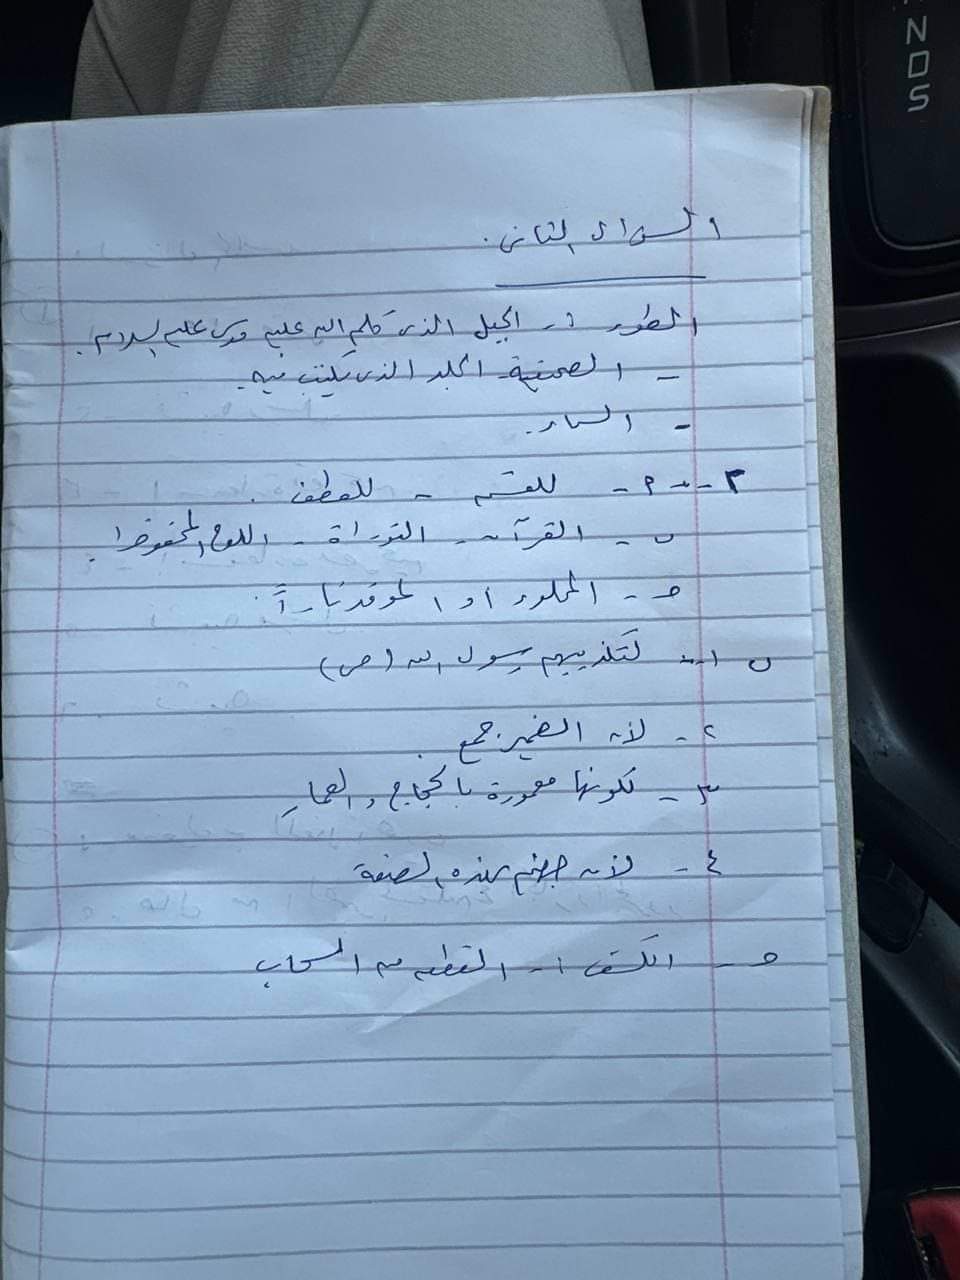 السؤال الثاني.
الطور :- الجبل الذي كلم الله عليه موسى عليه السلام.
- الصحيفة - الجلد الذي يكتب فيه.
- السماء.
٢- م - للقسم - للعطف.
ب - القرآن - التوراة - اللوح المحفوظ.
ح - المملوء أو الموقد ناراً.
ب ١- لتكذيبهم رسول الله (ص)
٢- لأن الضمير جمع
٣- لكونها معمورة بالحجاج والعمار
٤- لأن جهنم بهذه الصفة
ح - الكسف :- القطعه من السحاب
N
D
S